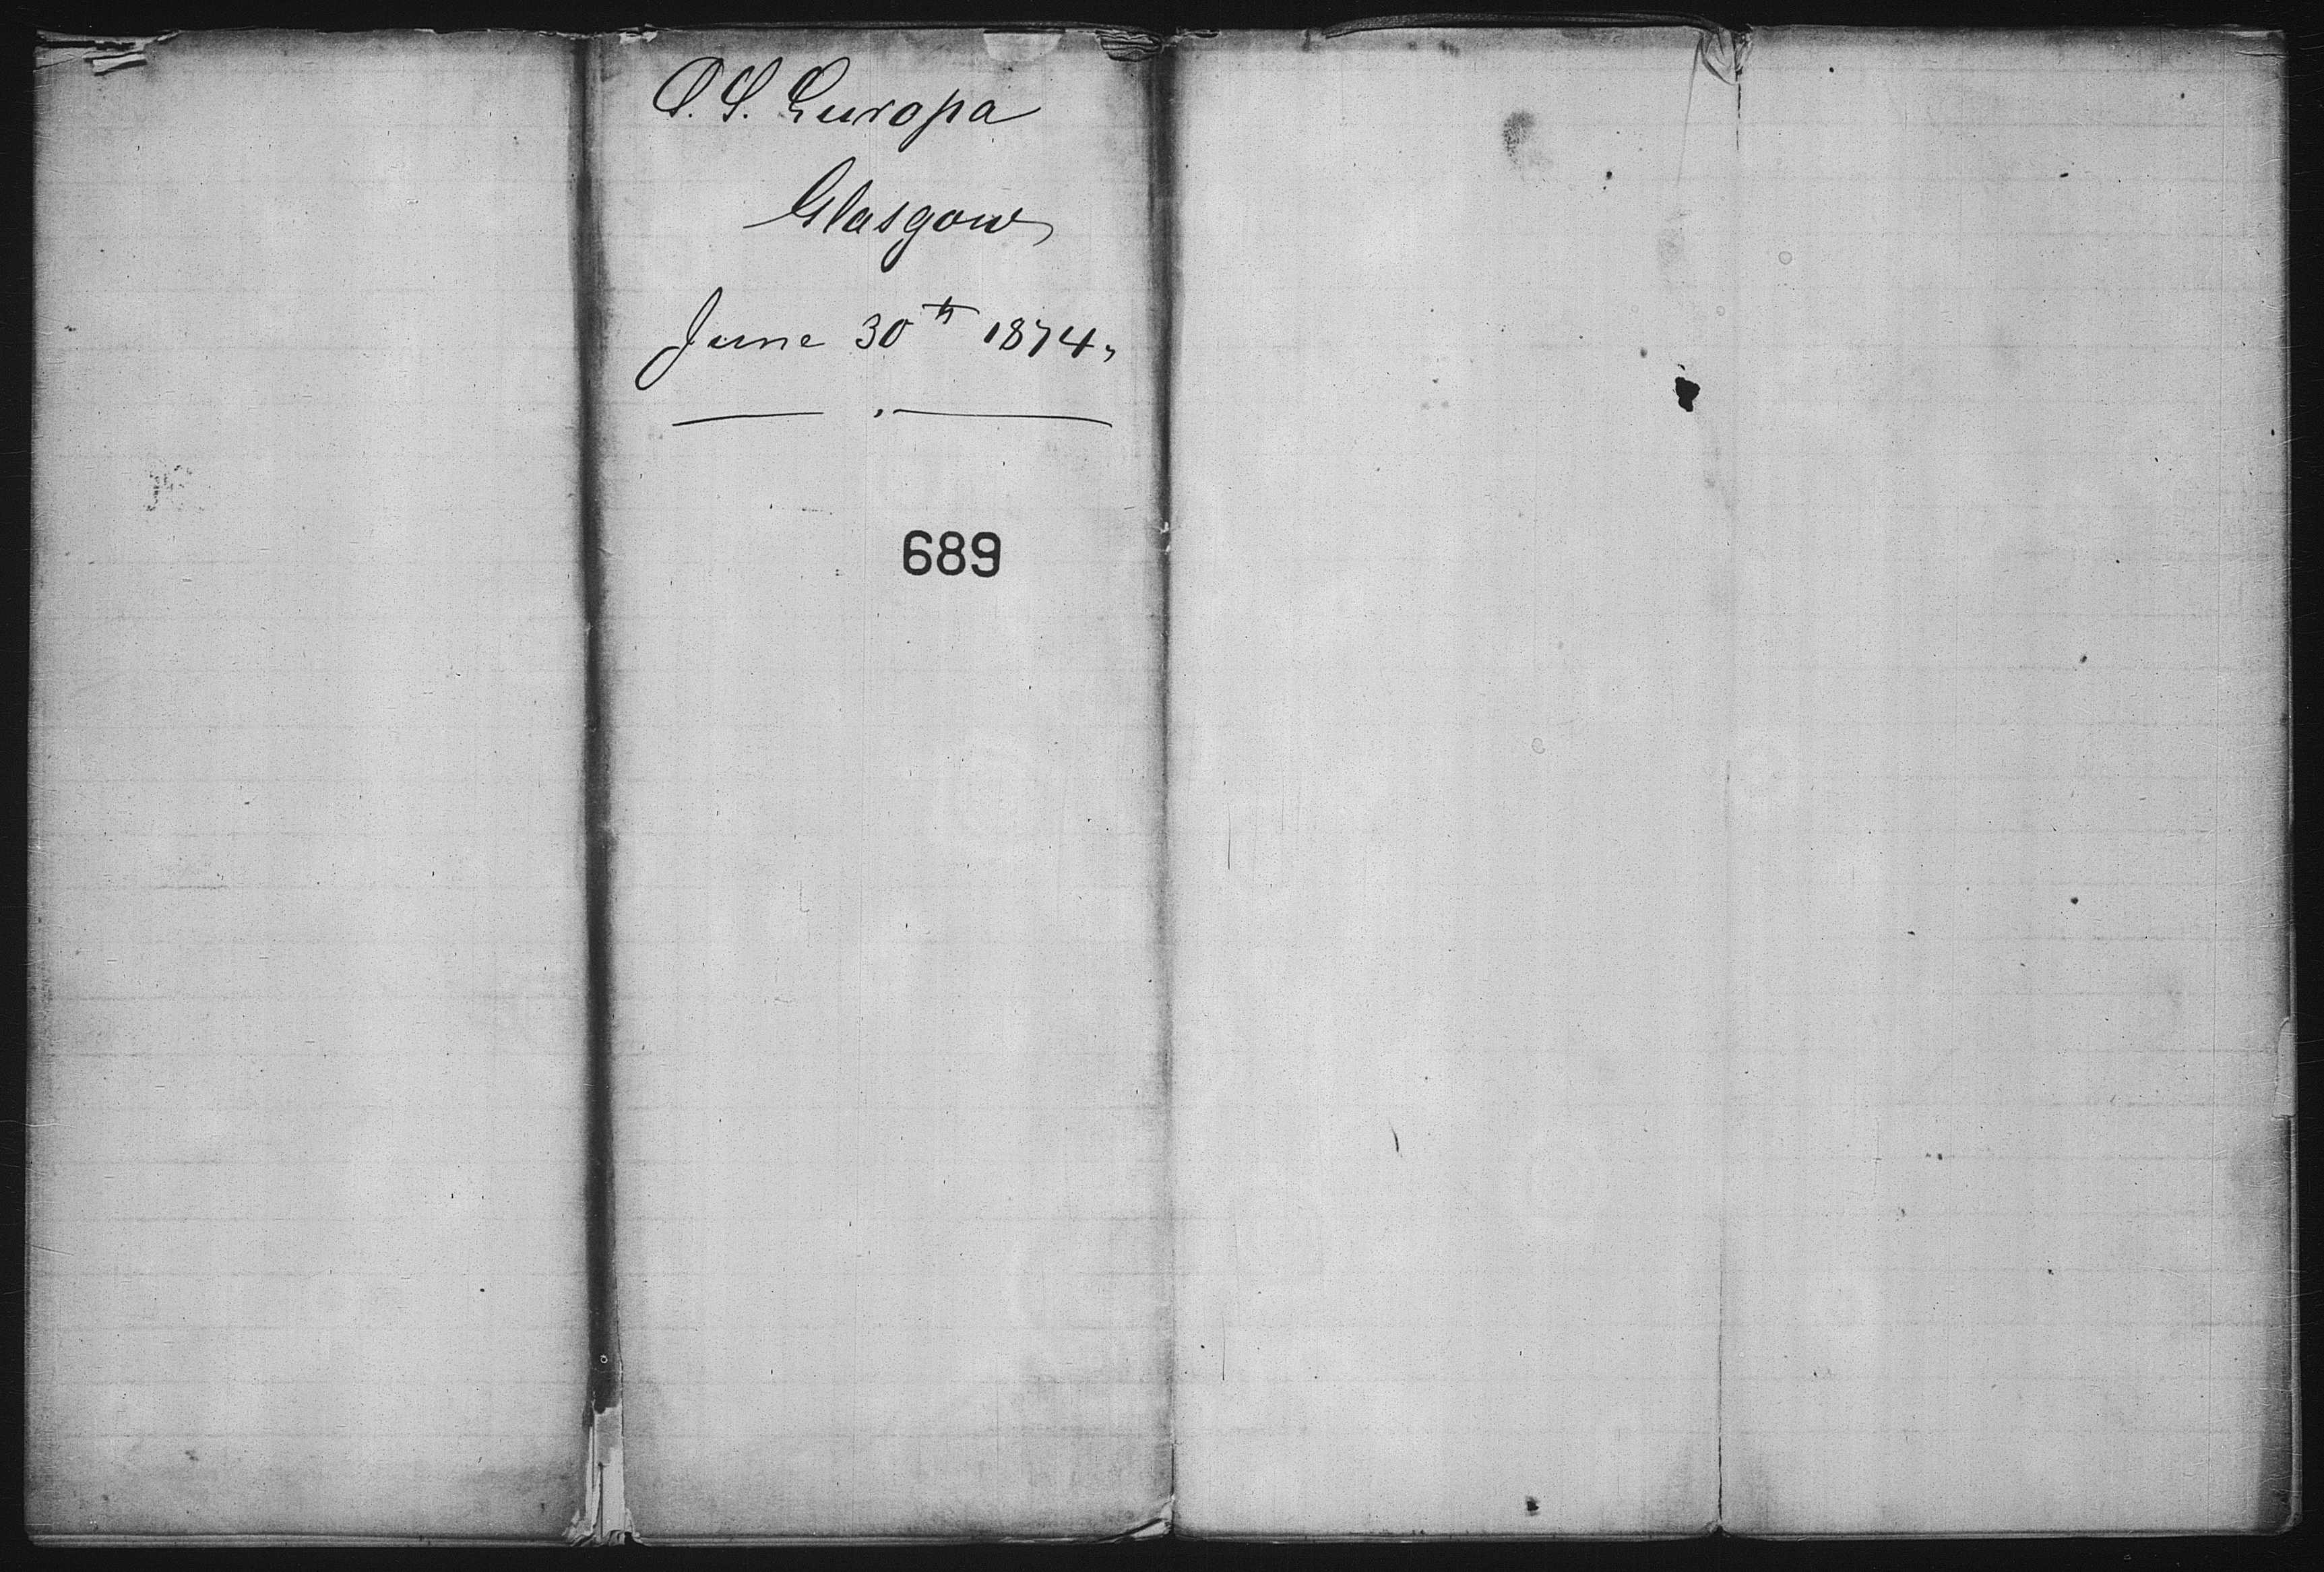 S.S. Europa
Glasgow
June 30th 1874.
689